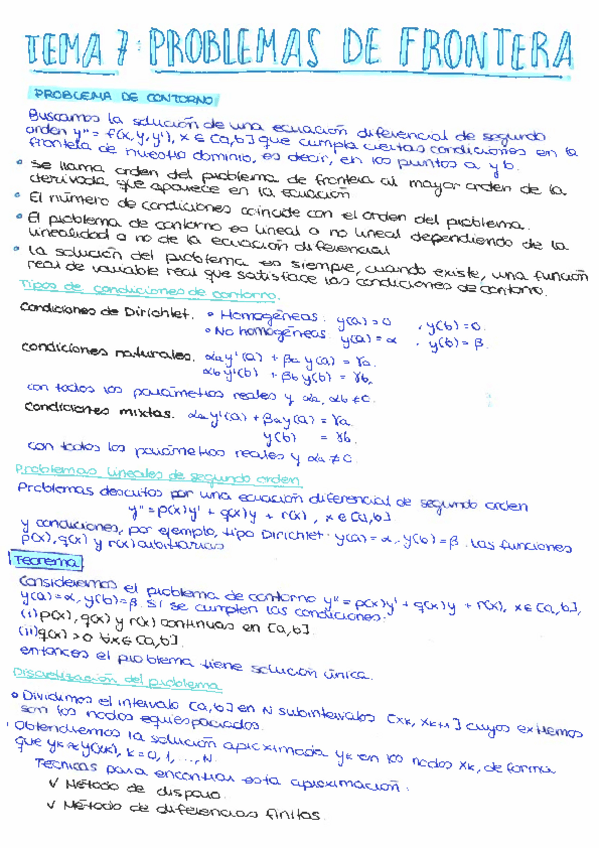 TEMA 7: PROBLEMAS DE FRONTERA
PROBLEMA DE CONTORNO
Buscamos la solución de una ecuación diferencial de segundo
orden y'' = f(x, y, y'), x ∈ [a,b] que cumpla ciertas condiciones en la
frontera de nuestro dominio, es decir, en los puntos a y b.
• Se llama orden del problema de frontera al mayor orden de la
derivada, que aparece en la ecuación
• El número de condiciones coincide con el orden del problema.
• El problema de contorno es lineal o no lineal dependiendo de la
linealidad o no de la ecuación diferencial
• La solución del problema es siempre, cuando existe, una función
real de variable real que satisface las condiciones de contorno.
Tipos de condiciones de contorno.
Condiciones de Dirichlet. • Homogéneas: y(a) = 0 , y(b) = 0.
• No homogéneas: y(a) = α , y(b) = β.
Condiciones naturales. αa y'(a) + βa y(a) = γa.
αb y'(b) + βb y(b) = γb.
con todos los parámetros reales y αa, αb ≠ 0.
Condiciones mixtas. αa y'(a) + βa y(a) = γa.
y(b) = γb.
con todos los parámetros reales y αa ≠ 0.
Problemas lineales de segundo orden.
Problemas descritos por una ecuación diferencial de segundo orden
y'' = p(x)y' + q(x)y + r(x) , x ∈ [a,b]
y condiciones, por ejemplo, tipo Dirichlet: y(a) = α, y(b) = β. Las funciones
p(x), q(x) y r(x) arbitrarias
Teorema
Consideremos el problema de contorno y'' = p(x)y' + q(x)y + r(x), x ∈ [a,b],
y(a) = α, y(b) = β. Si se cumplen las condiciones:
(i) p(x), q(x) y r(x) continuas en [a,b].
(ii) q(x) > 0 ∀x ∈ [a,b].
entonces el problema tiene solución única.
Discretización del problema
• Dividimos el intervalo [a,b] en N subintervalos [xk, xk+1] cuyos extremos
son los nodos equiespaciados.
• Obtendremos la solución aproximada yk en los nodos xk, de forma
que yk ≈ y(xk), k = 0, 1, ..., N.
Técnicas para encontrar esta aproximación:
√ Método de disparo.
√ Método de diferencias finitas.